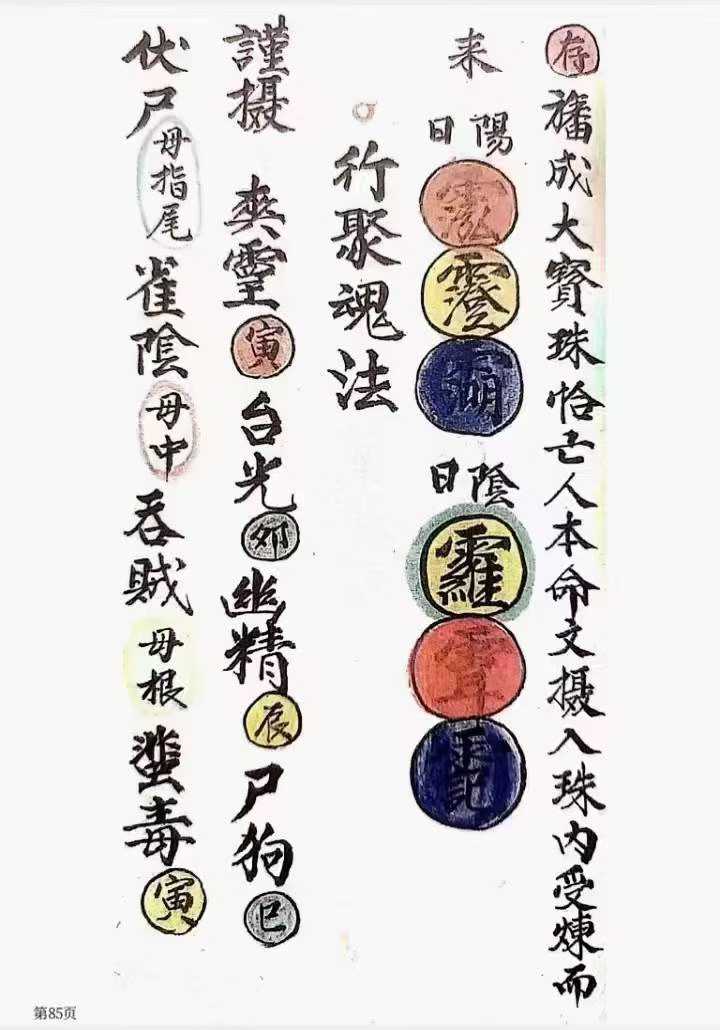 存旛成大寳珠恰亡人本命文摄入珠内受煉而
来
陽日
澪
霐
陰日
羅
行聚魂法
謹摄 爽靈寅台光卯幽精辰尸狗巳
伏尸母指尾雀陰母中吞賊母根蜚毒寅
第85页